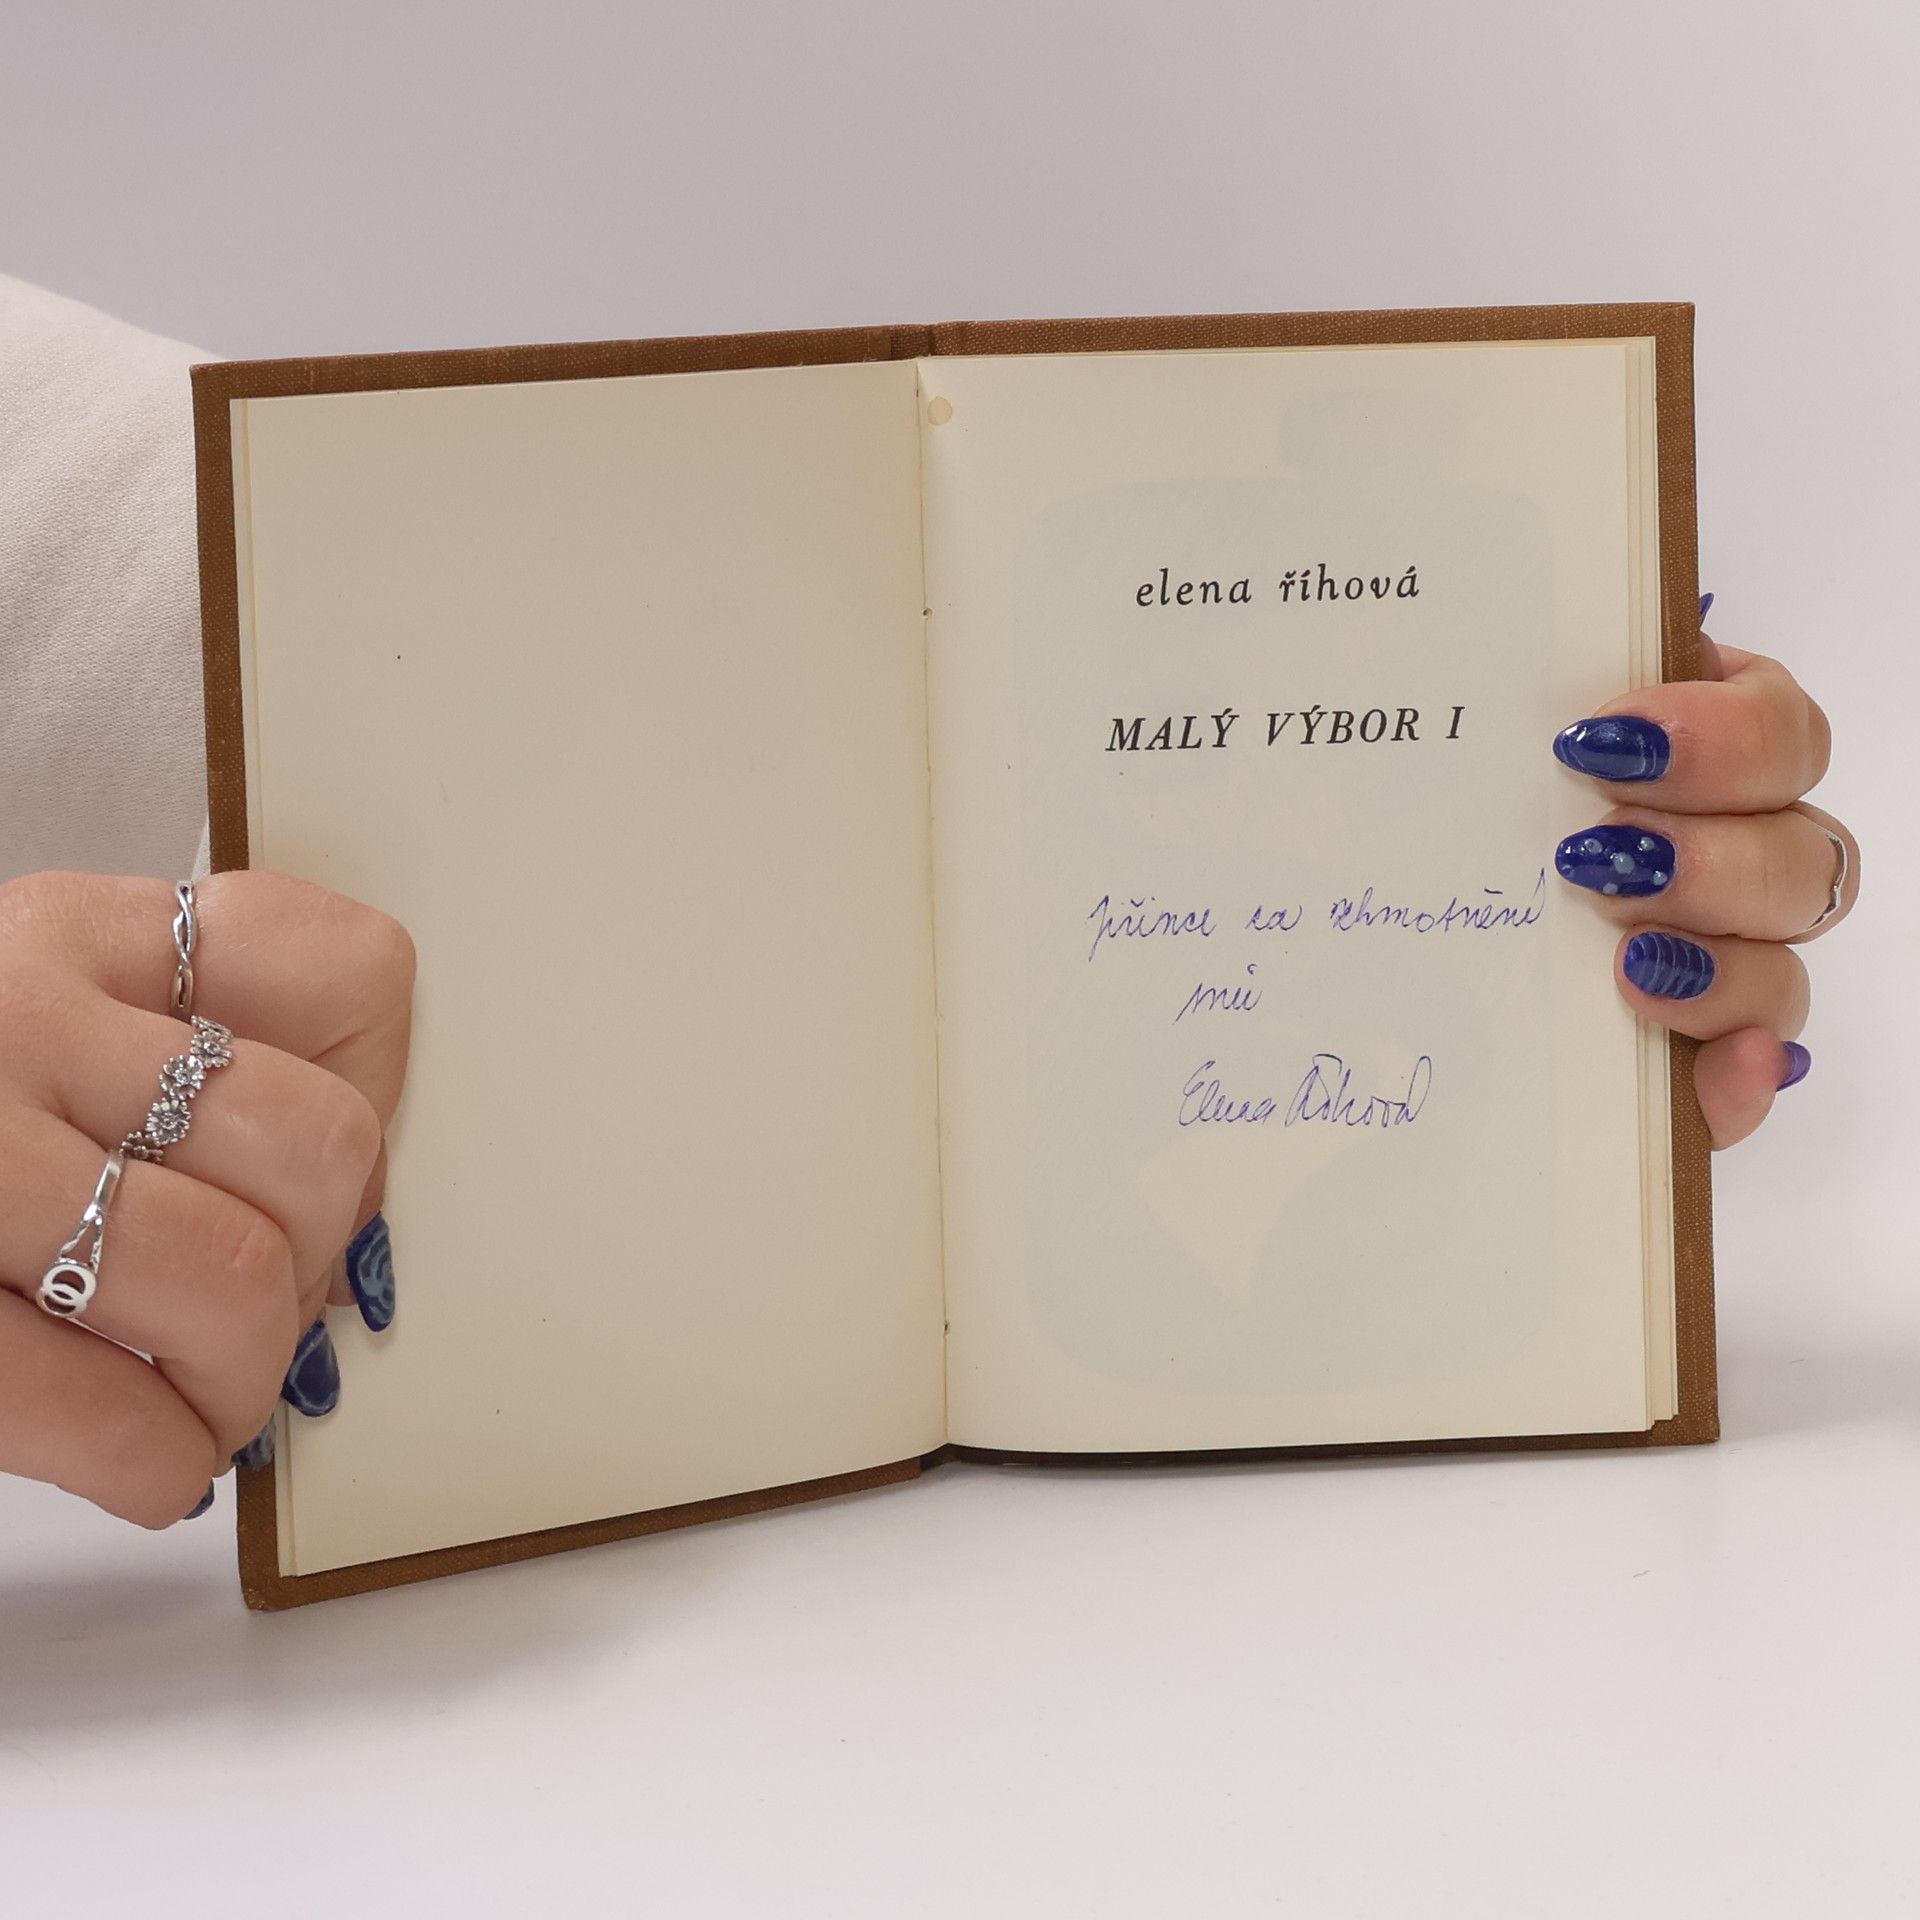 elena říhová
MALÝ VÝBOR I
Jiřince za zhmotnění
snů
Elena Říhová